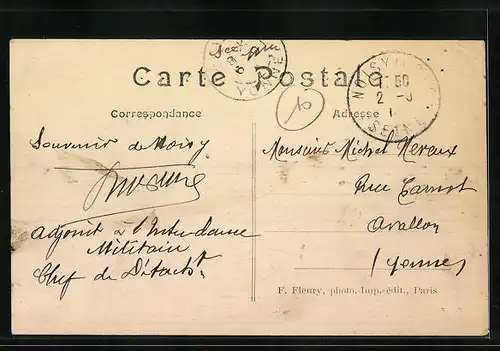 Carte Postale
Correspondance
Souvenir de Noisy
Adjoint à l'Intendance
Militaire
Chef de Détacht
Adresse
NOISY
2
SEINE
Monsieur Michel Meraux
Rue Carnot
Avallon
(Yonne)
F. Fleury, photo.-Imp.-édit., Paris